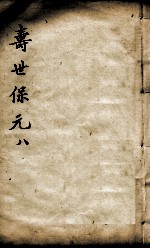 壽世保元八